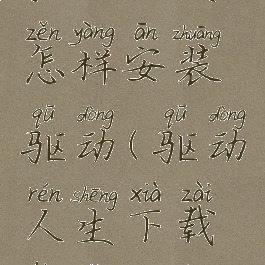 zěn yàng ān zhuāng
怎样安装
qū dòng qū dòng
驱动(驱动
rén shēng xià zài
人生下载